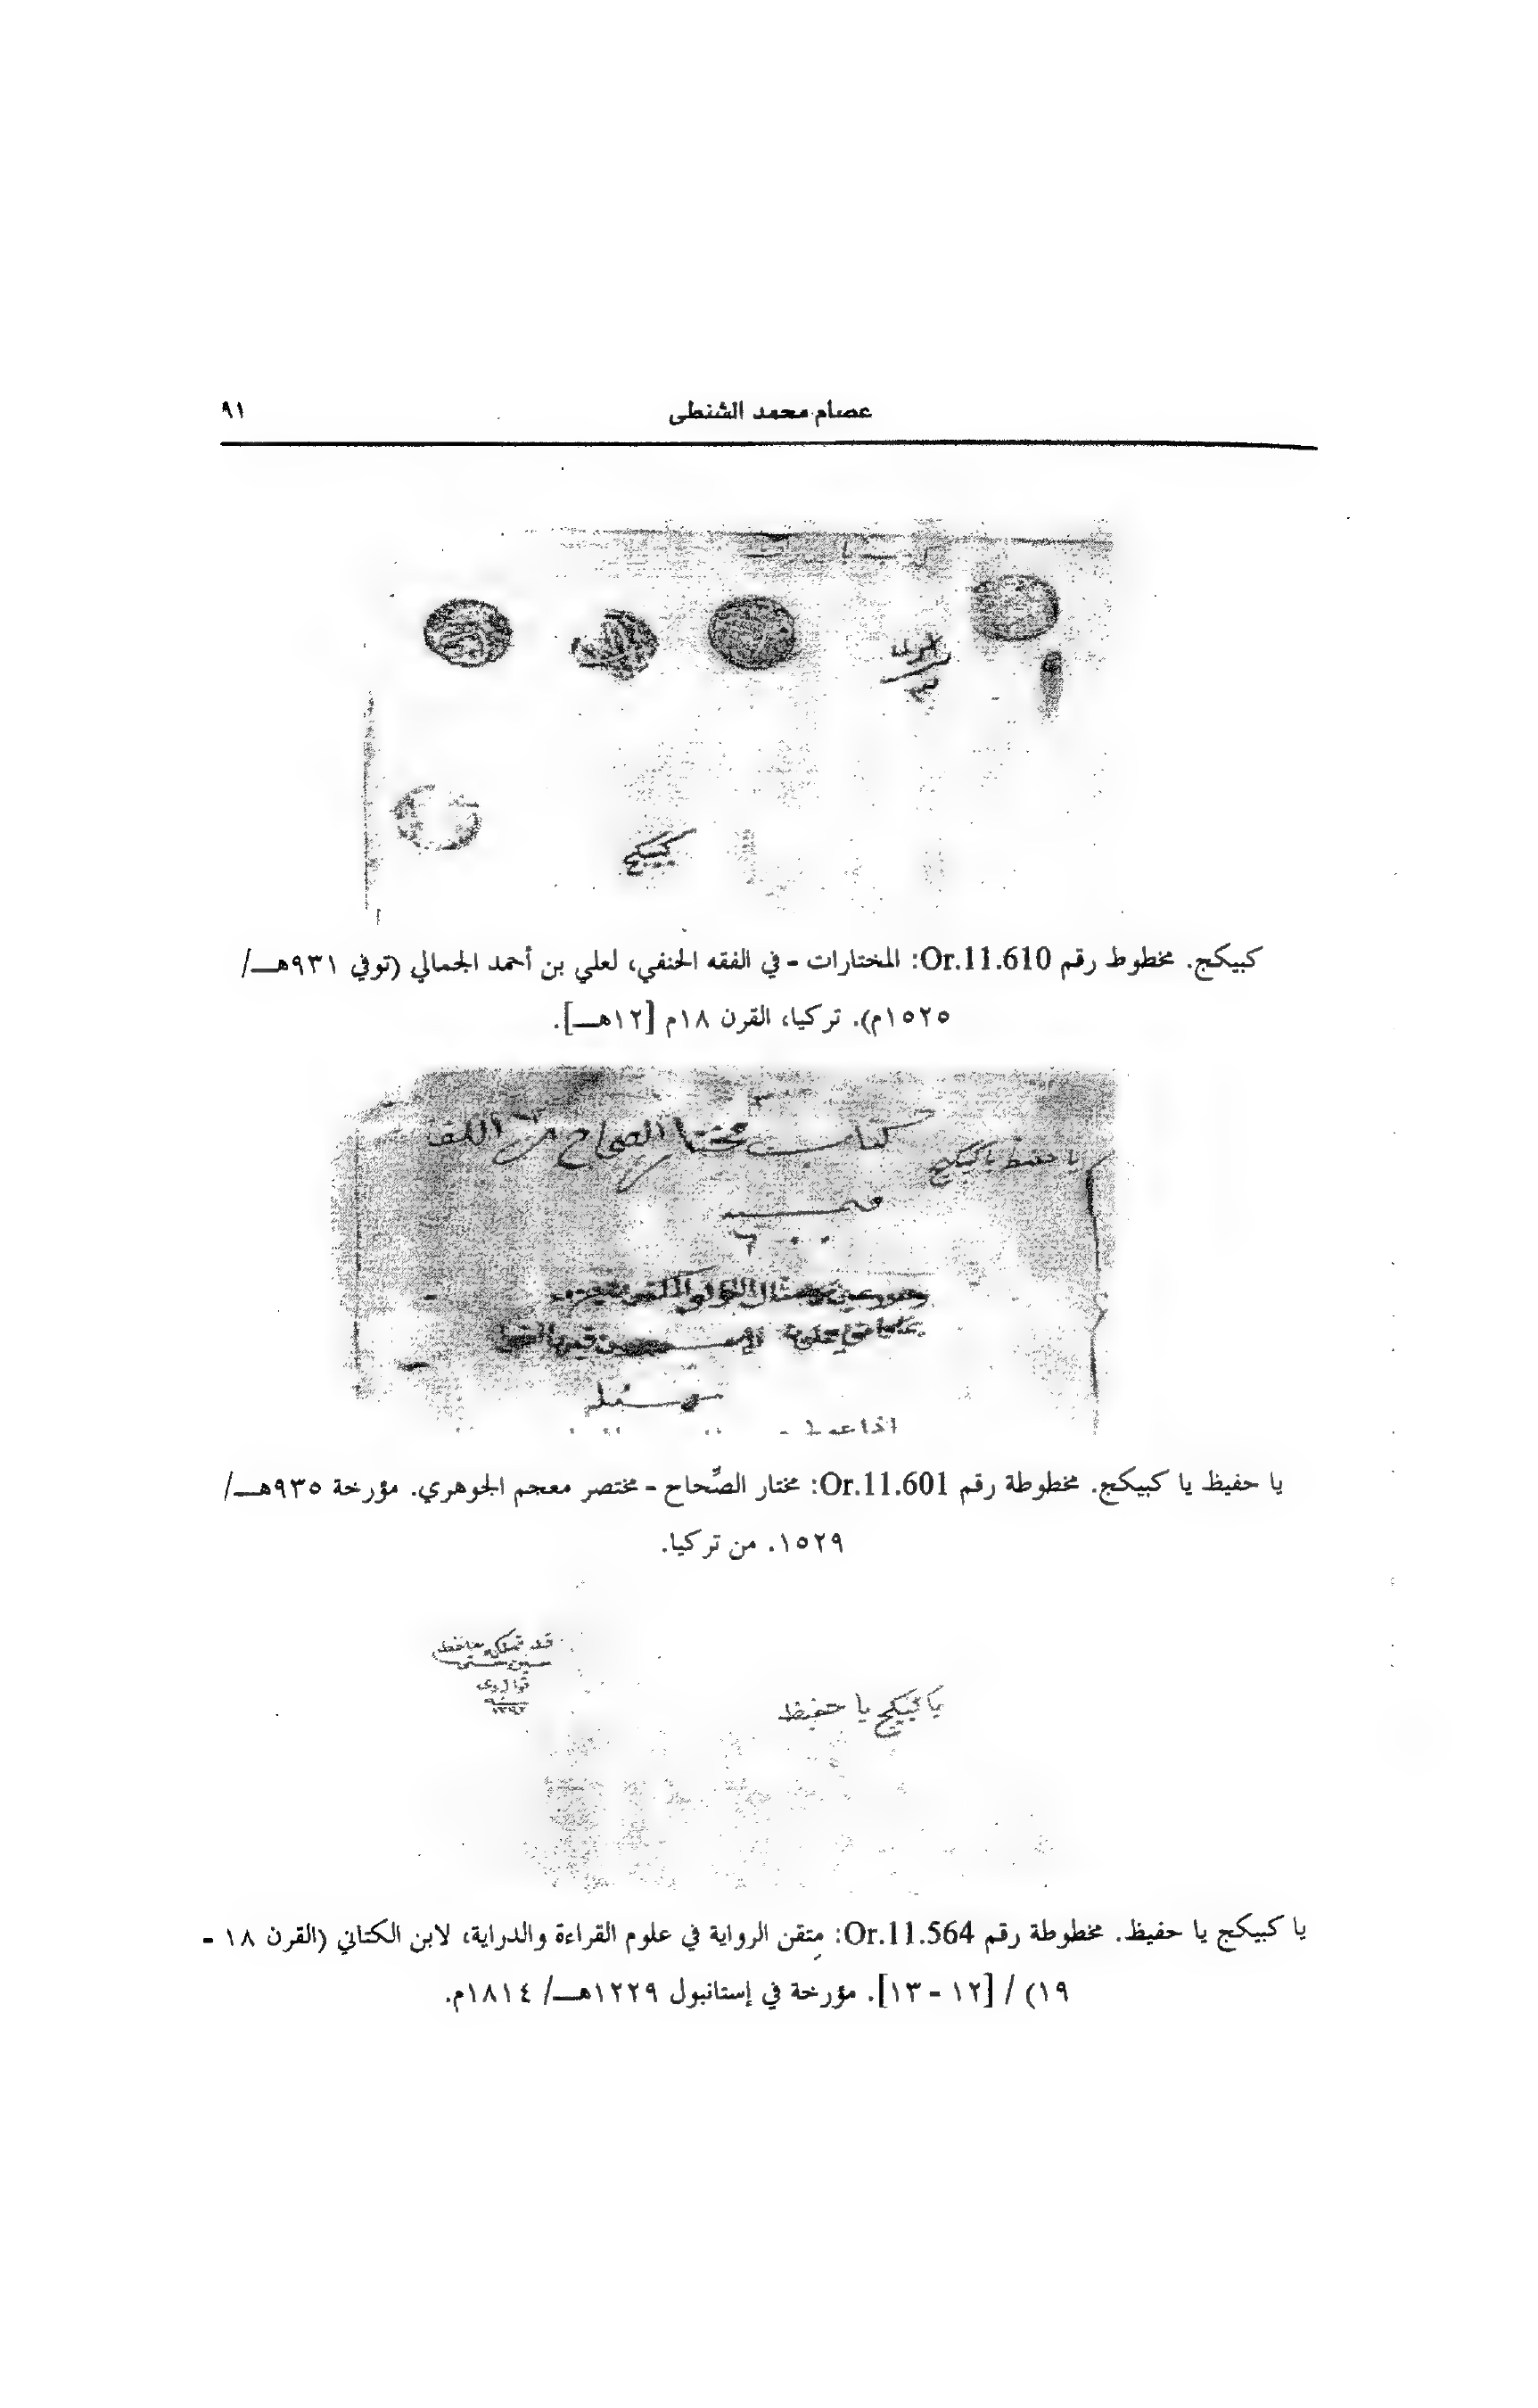 عصام محمد الشنطي
٩١
كبيكج
كبيكج. مخطوط رقم Or.11.610: المختارات - في الفقه الحنفي، لعلي بن أحمد الجمالي (توفي ٩٣١هـ/
١٥٢٥م). تركيا، القرن ١٨م [١٢هـ].
كتاب مختار الصحاح من اللغة
يا حفيظ يا كبيكج
يا حفيظ يا كبيكج. مخطوطة رقم Or.11.601: مختار الصِّحاح - مختصر معجم الجوهري. مؤرخة ٩٣٥هـ/
١٥٢٩. من تركيا.
يا كبيكج يا حفيظ
يا كبيكج يا حفيظ. مخطوطة رقم Or.11.564: متقن الرواية في علوم القراءة والدراية، لابن الكتاني (القرن ١٨ -
١٩) / [١٢ - ١٣]. مؤرخة في إستانبول ١٢٢٩هـ/ ١٨١٤م.